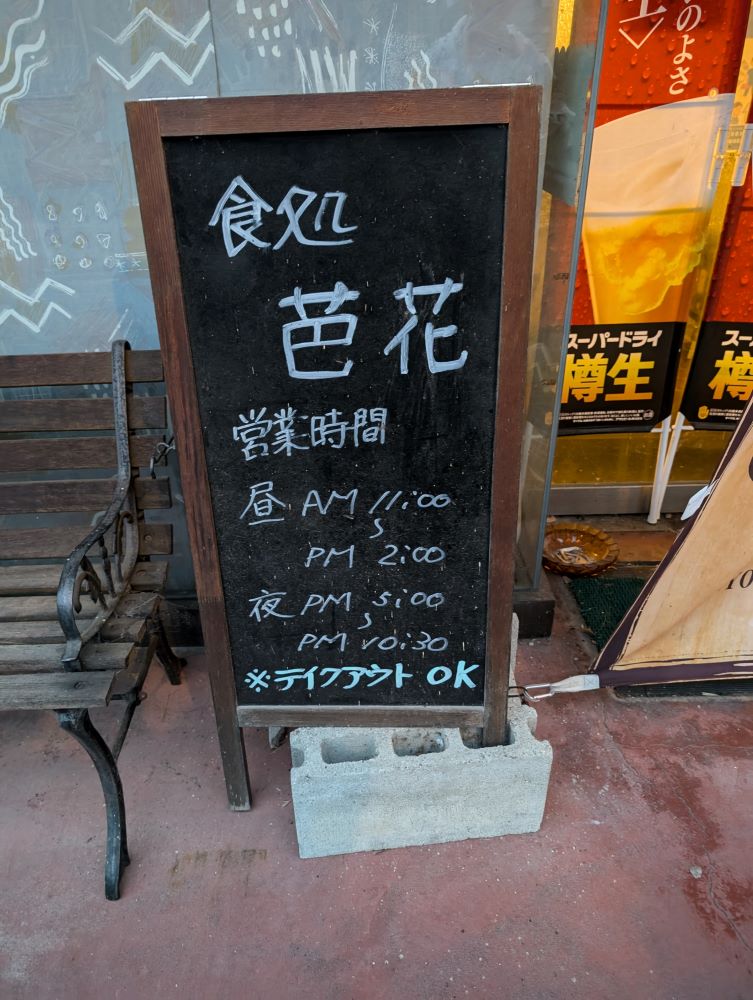 食処
芭花
営業時間
昼 AM 11:00
〜
PM 2:00
夜 PM 5:00
〜
PM 10:30
※テイクアウト OK
のよさ
スーパードライ
樽生
スー
樽
10